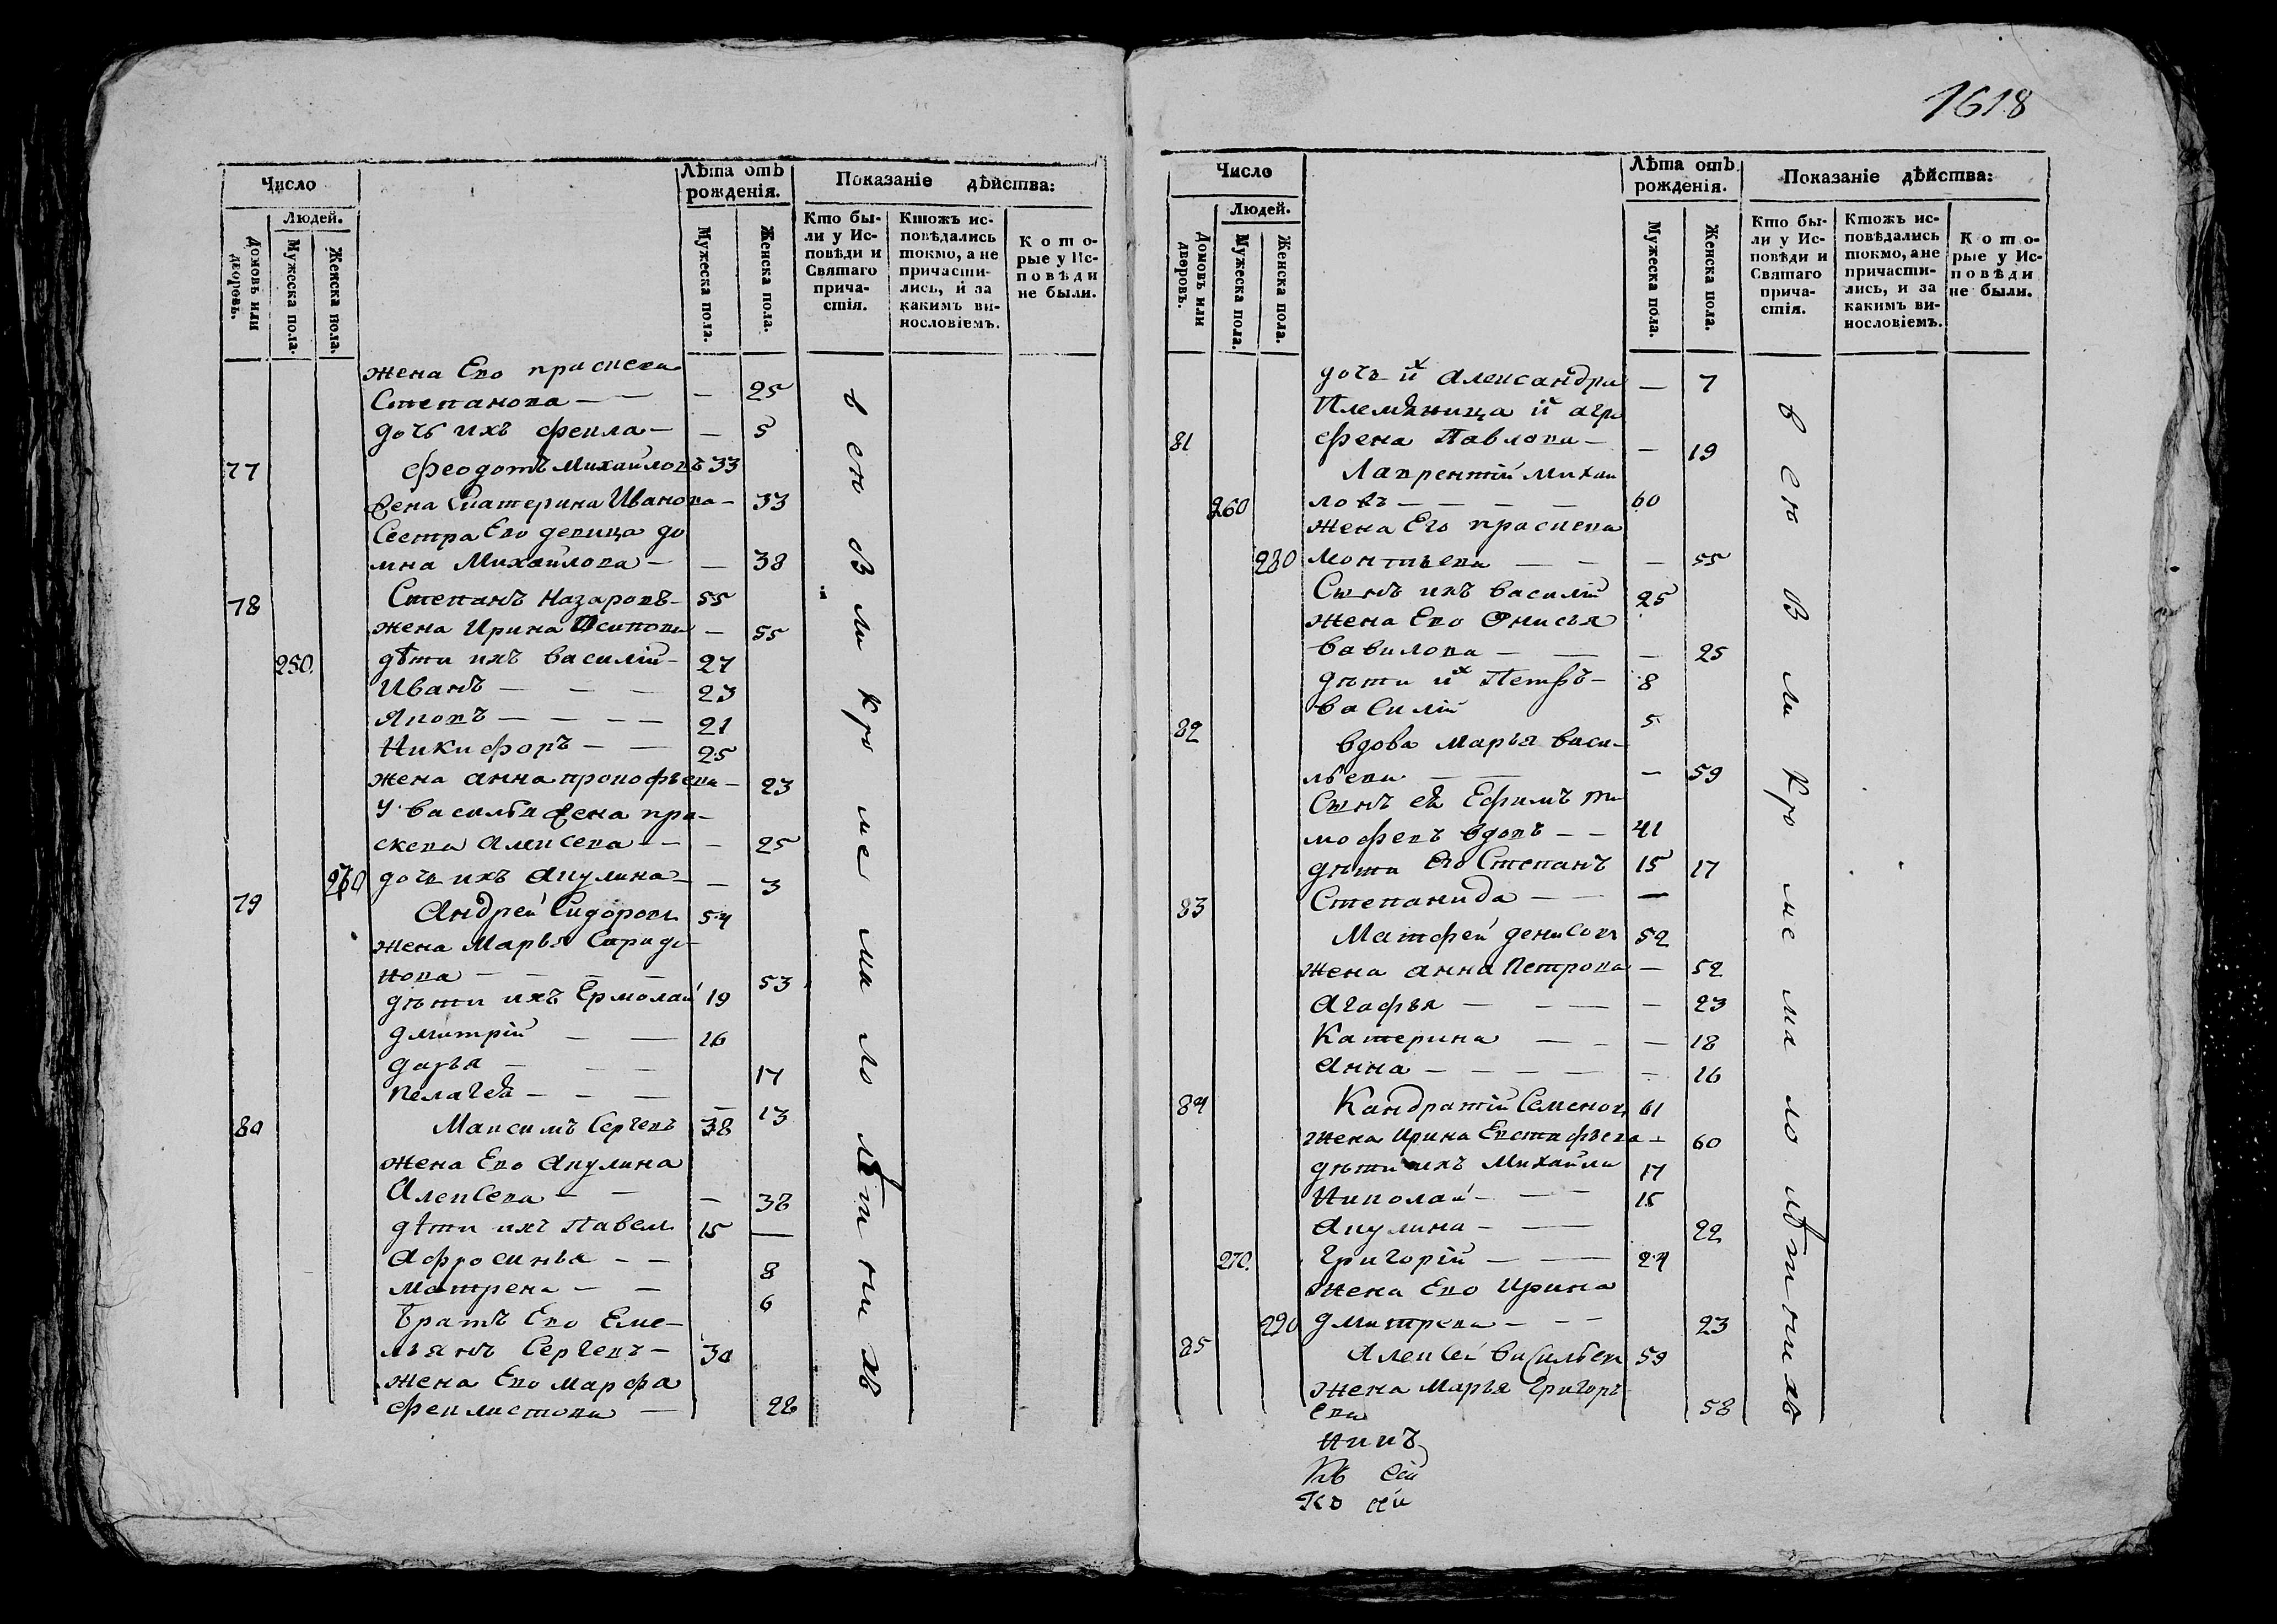 1618
Число
Лѣта отъ рожденія.
Показаніе дѣйства:
Людей.
Домовъ или дворовъ.
Мужеска пола.
Женска пола.
Мужеска пола.
Женска пола.
Кто были у Исповѣди и Святаго причастія.
Ктожъ исповѣдались токмо, а не причастились, и за какимъ винословіемъ.
Которые у Исповѣди не были.
жена Ево праскева
Степанова — — — 25
дочь ихъ фекла — — 5
77 Феодотъ Михайловъ 33
жена Екатерина Иванова — 33
Сестра Ево девица до
мна Михайлова — — 38
78 Степанъ Назаровъ — 55
жена Ирина Осипова — 55
250 дѣти ихъ Василій — 27
Иванъ — — — 23
Яковъ — — — — 21
Никифоръ — — 25
жена анна прокофьева — 23
У Василья жена пра-
скева Алексева — — — 25
260 дочь ихъ Акулина — — 3
79 Андрей Сидоровъ 54
жена Марья Спиридо-
нова — — — — 53
дѣти ихъ Ермолай 19
дмитрій — — 16
дарья — — — 17
Пелагея — — — — 13
80 Максимъ Сергевъ 38
жена Ево Акулина
Алексева — — — 38
дѣти ихъ Павелъ 15 —
Афросинья — — 8
Матрена — — 6
братъ Ево Еме-
льянъ Сергевъ — 30
жена Ево Марфа
феклистова — 28
всю вли кро ме ма ло лѣт ни хъ
Число
Лѣта отъ рожденія.
Показаніе дѣйства:
Людей.
Домовъ или дворовъ.
Мужеска пола.
Женска пола.
Мужеска пола.
Женска пола.
Кто были у Исповѣди и Святаго причастія.
Ктожъ исповѣдались токмо, а не причастились, и за какимъ винословіемъ.
Которые у Исповѣди не были.
дочь их Александра — 7
Племяница их агра
фена Павлова — — 19
81 Лаврентій михаи
260 ловъ — — — — 60
жена Его праскева
280 Монтьева — — — 55
Сынъ ихъ Василій 25
жена Ево Онисья
Вавилова — — — 25
дѣти их Петръ — 8
Василій 5
82 вдова Марья васи-
льева — — — 59
Сынъ ея Ефимъ ти
мофевъ вдовъ — — 41
дѣти Его Степанъ 15 17
Степанида — — —
83 Матфей денисовъ 52
жена анна Петрова — 52
Агафья — — — — 23
Катерина — — — 18
анна — — — — — 16
84 Кандратій Семеновъ 61
жена Ирина Евстафьева — 60
дѣти ихъ Михайла 17
Николай — — — 15
Акулина — — 22
270 Григорій — — 24
жена Ево Ирина
290 дмитрева — — — 23
85 Алексей Васильевъ 59
жена Марья Григорь
ева 58
всю вли кро ме ма ло лѣт ни хъ